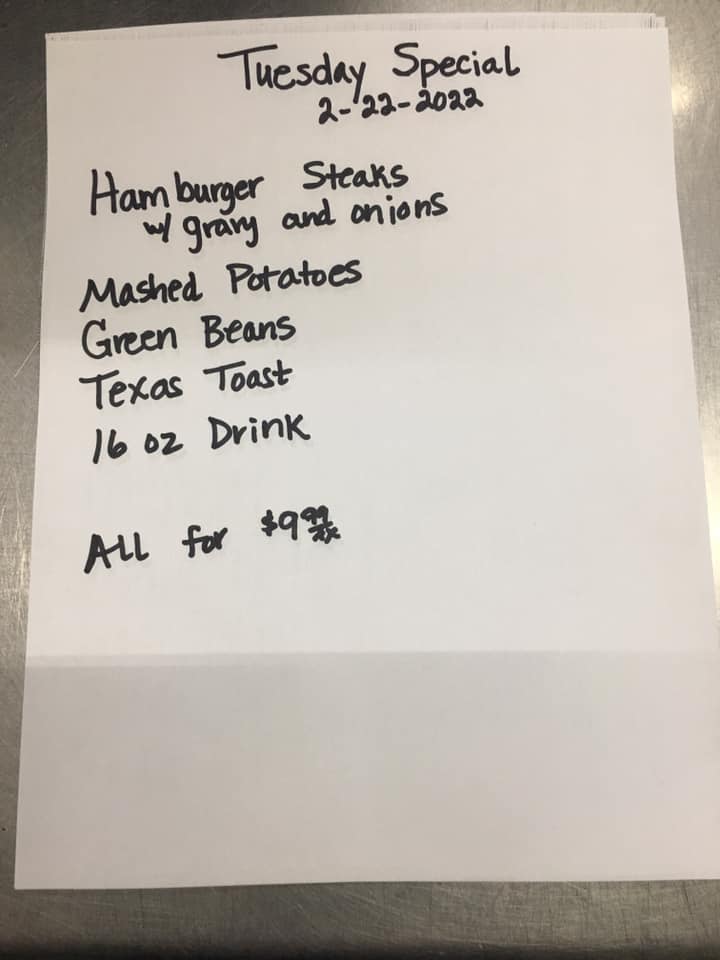 Tuesday Special
2-22-2022
Hamburger Steaks
w/ gravy and onions
Mashed Potatoes
Green Beans
Texas Toast
16 oz Drink
All for $9.99